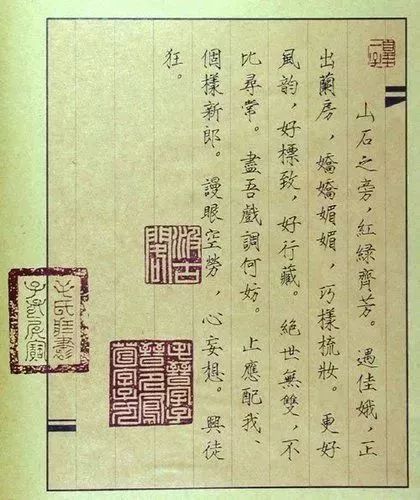 山石之旁，紅綠齊芳。遇佳娥，正
出蘭房，嬌嬌媚媚，巧樣梳妝。更好
風韵，好標致，好行藏。絕世無雙，不
比尋常。盡吾戲調何妨。止應配我、
個樣新郎。謾眼空勞，心妄想。興徒
狂。